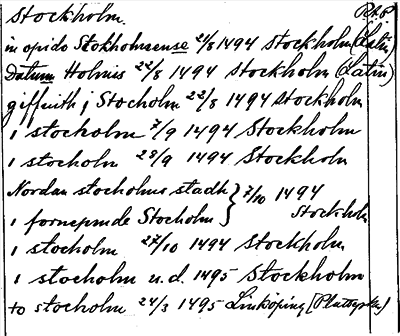 Stockholm. RAP
in opido Stokholmense 21/8 1494 Stockholm (Latin)
Datum Holmis 22/8 1494 Stockholm (Latin)
giffuith j Stocholm 22/8 1494 Stockholm
i stocholm 7/9 1494 Stockholm
i stocholm 28/9 1494 Stockholm
Nordan stocholms stadh } 7/10 1494
i fornempnde Stocholm Stockholm
i stocholm 27/10 1494 Stockholm
i stocholm u.d. 1495 Stockholm
to stocholm 24/3 1495 Linköping